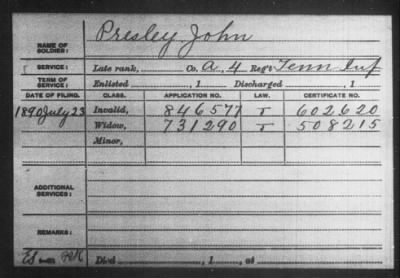 NAME OF SOLDIER: Presley John
SERVICE: Late rank, Co. A, 4 Reg't Tenn Inf
TERM OF SERVICE: Enlisted , 1 Discharged , 1
DATE OF FILING. CLASS. APPLICATION NO. LAW. CERTIFICATE NO.
1890 July 23 Invalid, 846577 T 602620
Widow, 731290 T 508215
Minor,
ADDITIONAL SERVICES:
REMARKS:
Died , 1 , at